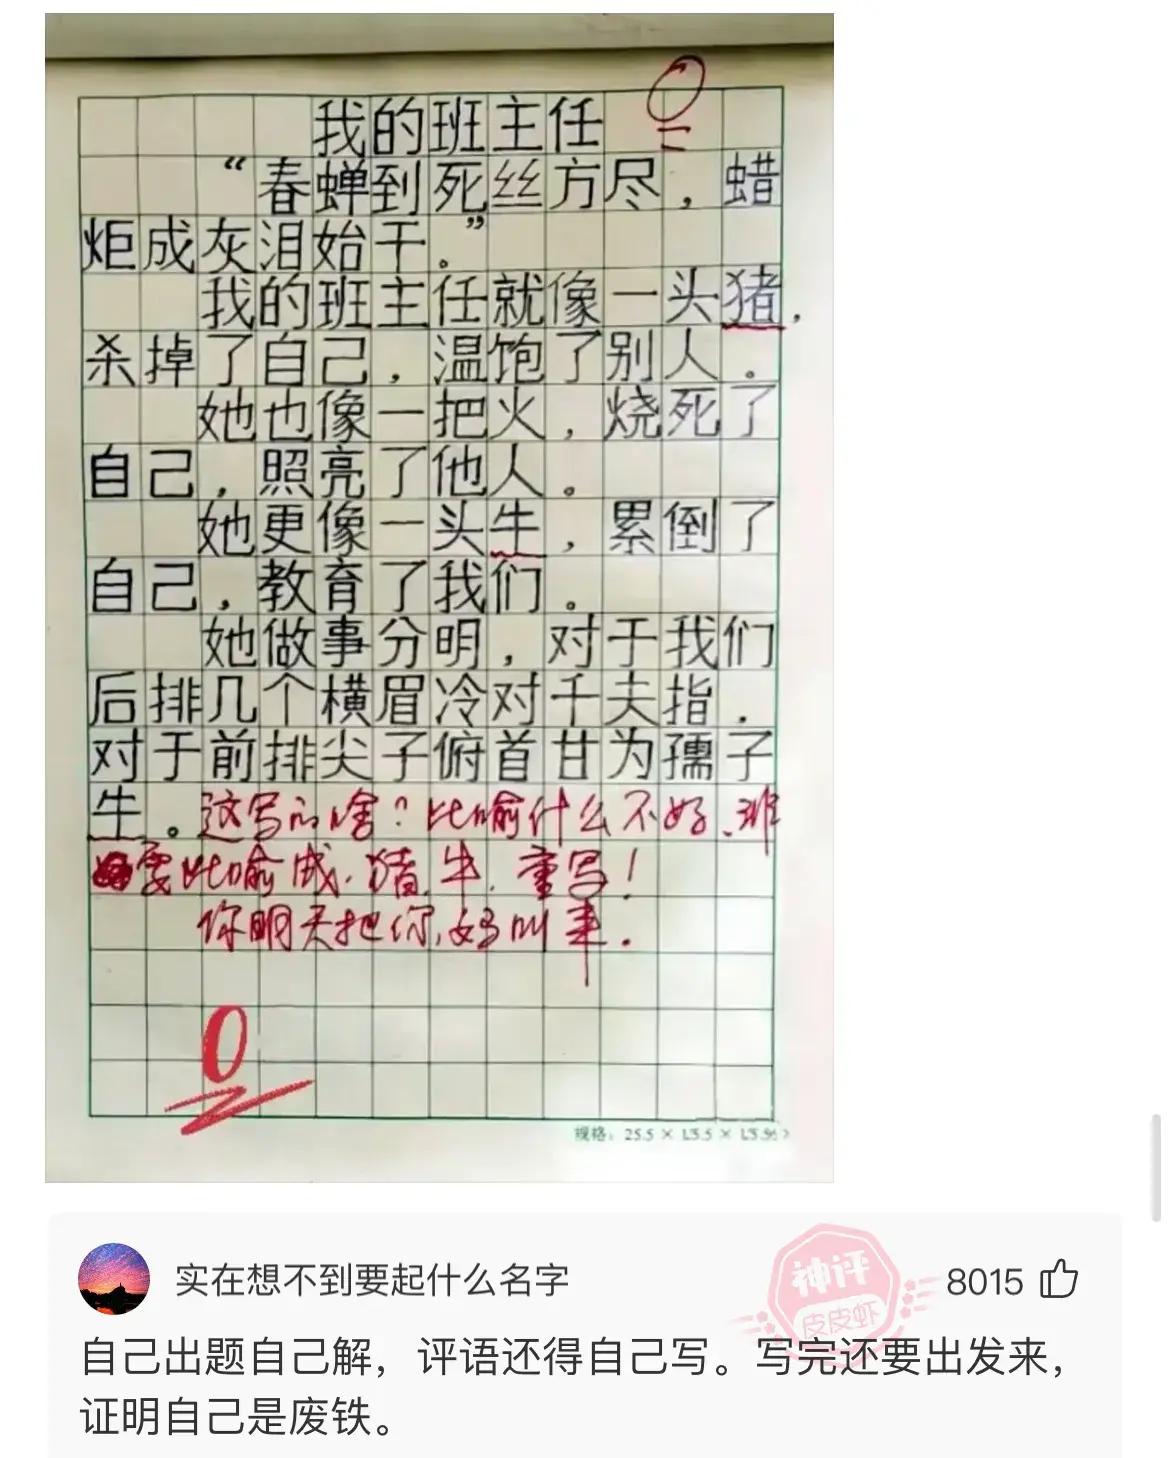 我的班主任
“春蝉到死丝方尽，蜡
炬成灰泪始干。”
我的班主任就像一头猪，
杀掉了自己，温饱了别人。
她也像一把火，烧死了
自己，照亮了他人。
她更像一头牛，累倒了
自己，教育了我们。
她做事分明，对于我们
后排几个横眉冷对千夫指，
对于前排尖子俯首甘为孺子
牛。这写的啥？比喻什么不好、非
要比喻成、猪、牛、重写！
你明天把你妈叫来.
0
规格：25.5 ×
实在想不到要起什么名字
神评
皮皮虾
8015
自己出题自己解，评语还得自己写。写完还要出发来，
证明自己是废铁。